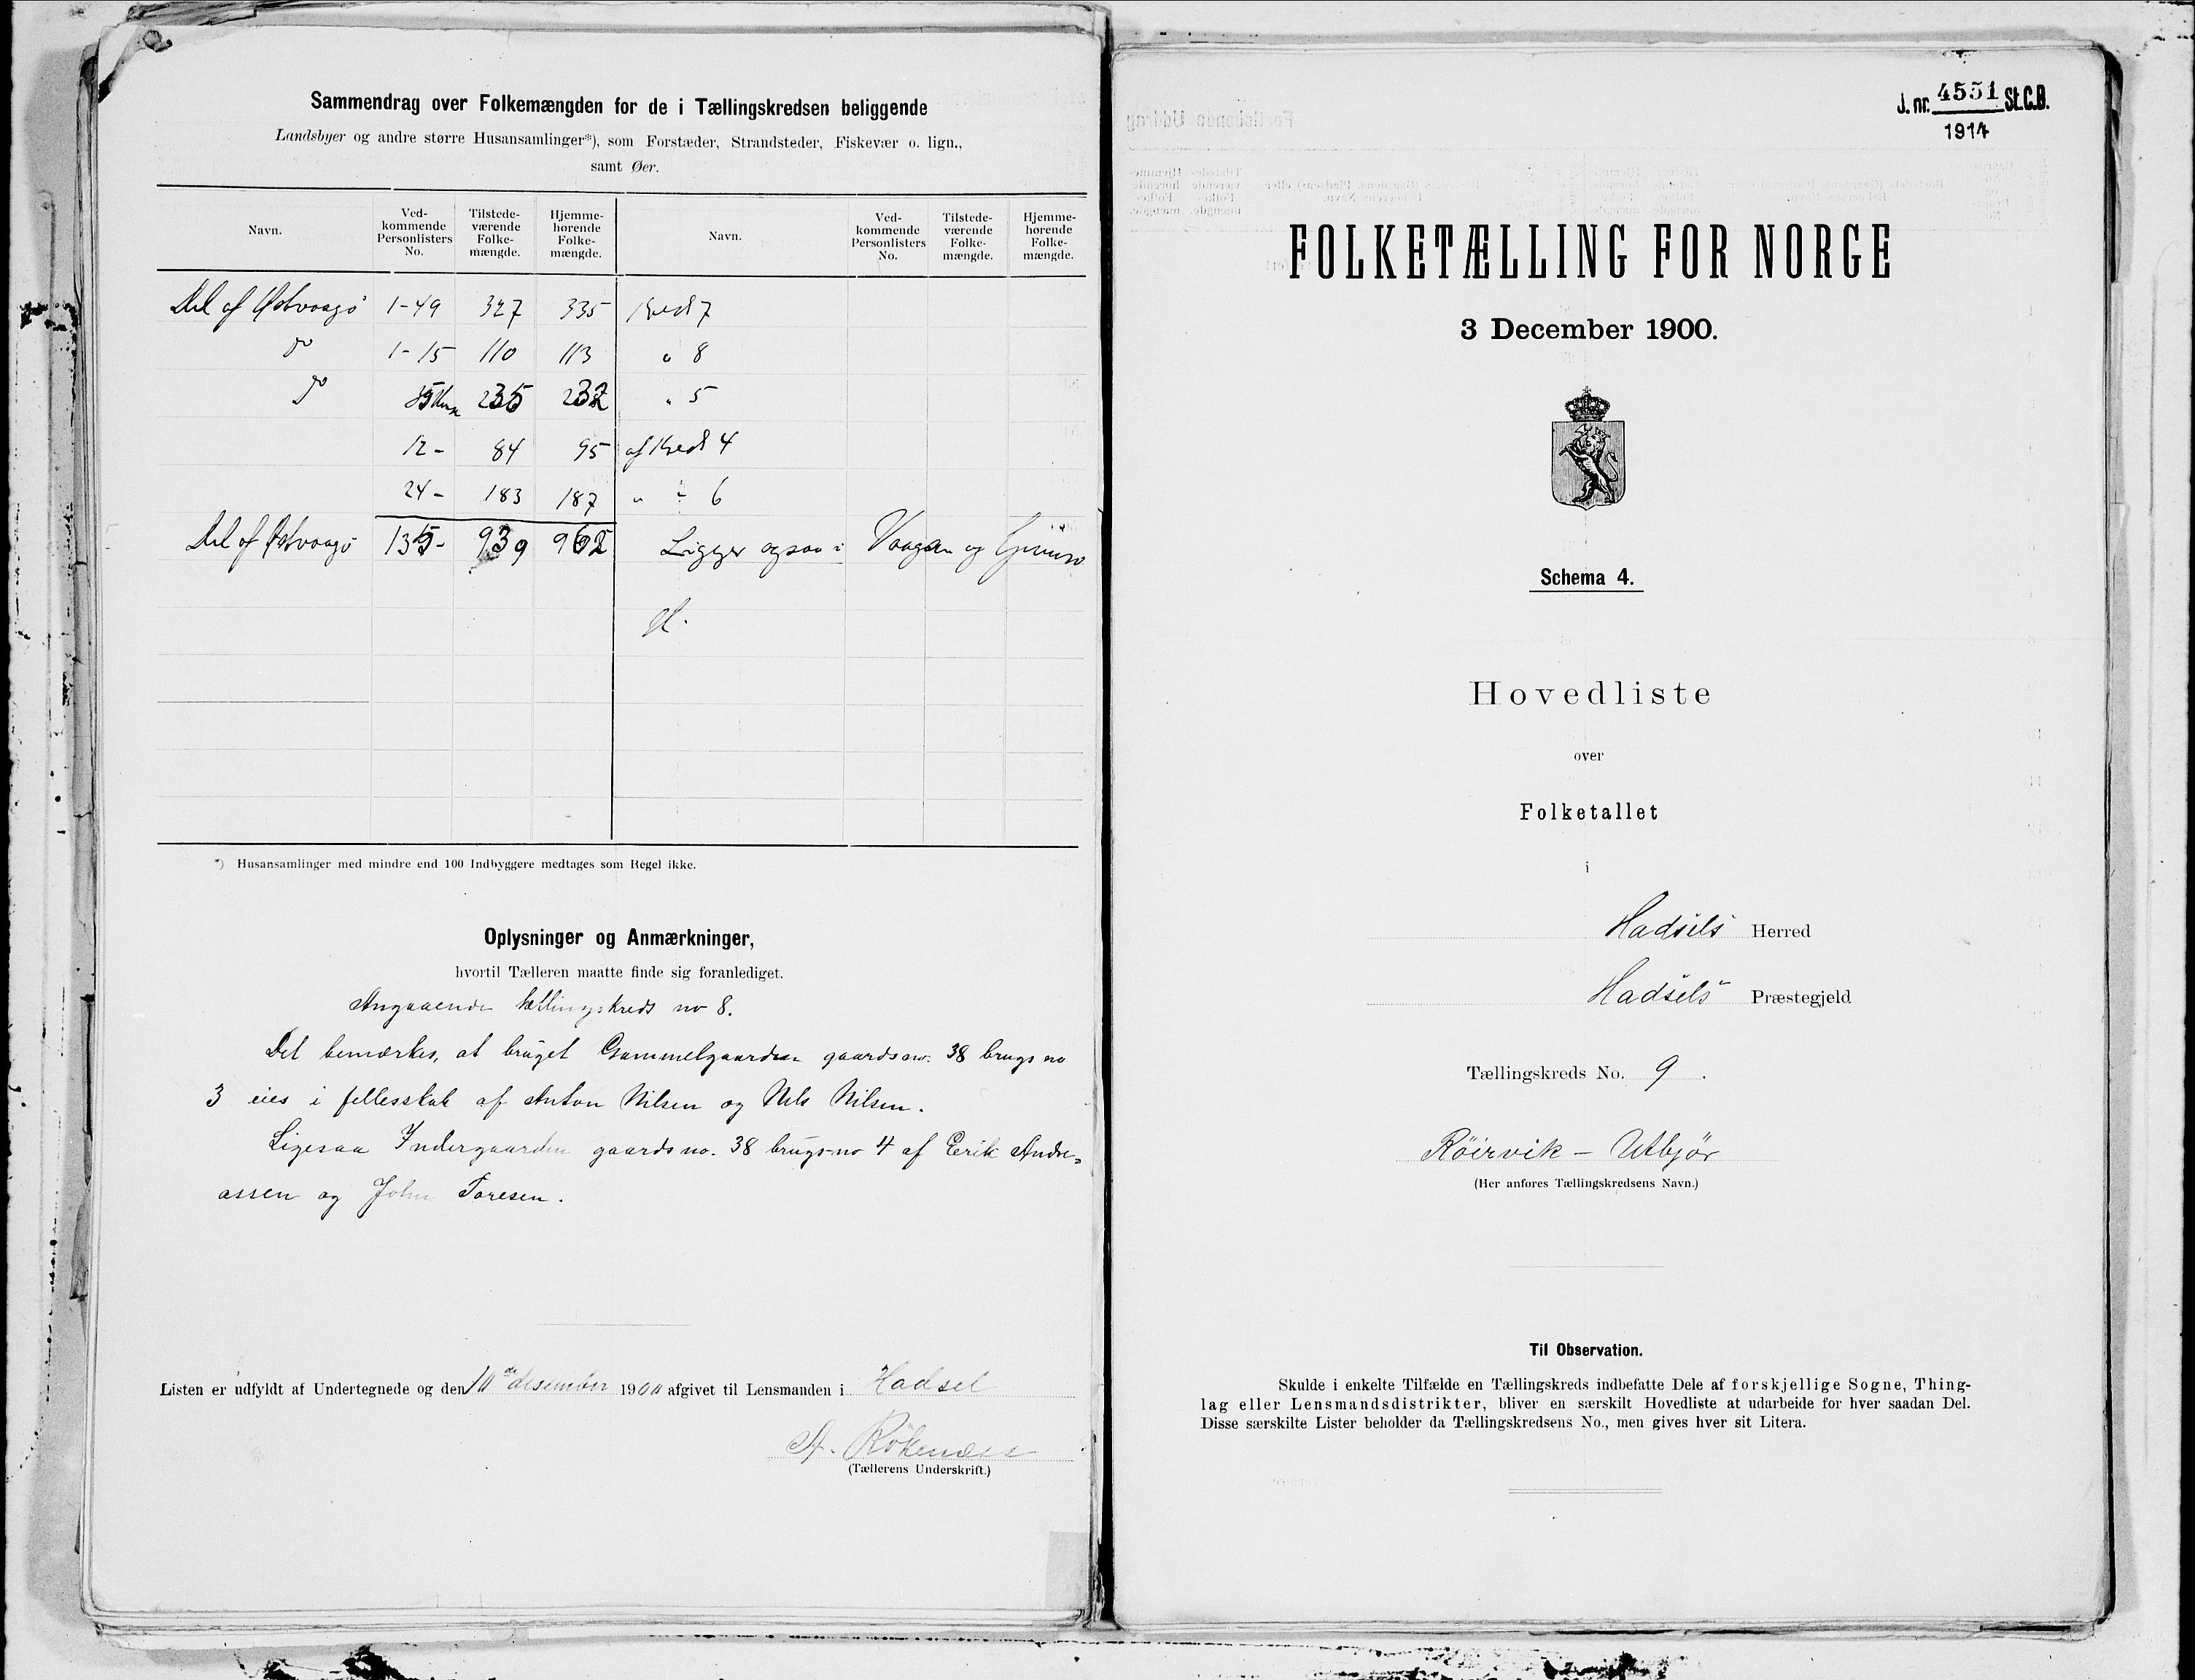 Sammendrag over Folkemængden for de i Tællingskredsen beliggende
Landsbyer og andre større Husansamlinger*), som Forstæder, Strandsteder, Fiskevær o. lign.,
samt Øer.
Navn. Ved-kommende Personlisters No. Tilstede-værende Folke-mængde. Hjemme-hørende Folke-mængde. Navn. Ved-kommende Personlisters No. Tilstede-værende Folke-mængde. Hjemme-hørende Folke-mængde.
Del af Østvaagø 1-49 327 335 Kreds 7
do 1-15 110 113 " 8
do 35 235 232 " 5
12- 84 95 af Kreds 4
24- 183 187 " " 6
Del af Østvaagø 135- 939 962 Ligger ogsaa i Vaagan og Gimsø
H.
*) Husansamlinger med mindre end 100 Indbyggere medtages som Regel ikke.
Oplysninger og Anmærkninger,
hvortil Tælleren maatte finde sig foranlediget.
Angaaende tællingskreds no 8.
Det bemærkes, at bruget Gammelgaarden gaardsno. 38 brugs no
3 eies i fellesskab af Anton Nilsen og Nils Nilsen.
Ligesaa Indergaarden gaards no. 38 brugs no 4 af Erik Andre=
assen og John Toresen.
Listen er udfyldt af Undertegnede og den 10de desember 1900 afgivet til Lensmanden i Hadsel
A. Rökenæs
(Tællerens Underskrift.)
J. nr. 4551 St.C.B.
1914
FOLKETÆLLING FOR NORGE
3 December 1900.
Schema 4.
Hovedliste
over
Folketallet
i
Hadsels Herred
Hadsels Præstegjeld
Tællingskreds No. 9.
Röirvik – Utbjør
(Her anføres Tællingskredsens Navn.)
Til Observation.
Skulde i enkelte Tilfælde en Tællingskreds indbefatte Dele af forskjellige Sogne, Thing-
lag eller Lensmandsdistrikter, bliver en særskilt Hovedliste at udarbeide for hver saadan Del.
Disse særskilte Lister beholder da Tællingskredsens No., men gives hver sit Litera.